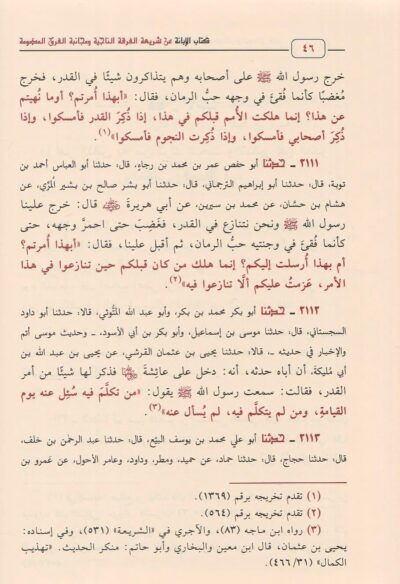 ٤٦
كتاب الإبانة عن شريعة الفرقة الناجية ومجانبة الفرق المذمومة
خرج رسول الله ﷺ على أصحابه وهم يتذاكرون شيئًا في القدر، فخرج
مُغضبًا كأنما فُقِئ في وجهه حبُّ الرمان، فقال: «أبهذا أُمرتم؟ أوما نُهيتم
عن هذا؟ إنما هلكت الأمم قبلكم في هذا، إذا ذُكِرَ القدر فأمسكوا، وإذا
ذُكِرَ أصحابي فأمسكوا، وإذا ذُكِرت النجوم فأمسكوا»(١).
٢١١١ ـ حدثنا أبو حفص عمر بن محمد بن رجاءٍ، قال: حدثنا أبو العباس أحمد بن
توبة، قال: حدثنا أبو إبراهيم الترجماني، قال: حدثنا أبو بشر صالح بن بشير المُرِّي، عن
هشام بن حسَّان، عن محمد بن سيرين، عن أبي هريرة قال: خرج علينا
رسول الله ﷺ ونحن نتنازع في القدر، فغَضِبَ حتى احمرَّ وجهه، حتى
كأنما فُقِئ في وجنتيه حبُّ الرمان، ثم أقبل علينا، فقال: «أبهذا أُمرتم؟
أم بهذا أُرسلت إليكم؟ إنما هلك من كان قبلكم حين تنازعوا في هذا
الأمر، عَزمتُ عليكم ألَّا تنازعوا فيه»(٢).
٢١١٢ ـ حدثنا أبو بكر محمد بن بكر، وأبو عبد الله المتُّوثي، قالا: حدثنا أبو داود
السجستاني، قال: حدثنا موسى بن إسماعيل، وأبو بكر بن أبي الأسود، ـ وحديث موسى أتم
والإخبار في حديثه ـ، قالا: حدثنا يحيى بن عثمان القرشي، عن يحيى بن عبد الله بن
أبي مُليكة، أن أباه حدثه، أنه: دخل على عائشة فذكر لها شيئًا من أمر
القدر، فقالت: سمعت رسول الله ﷺ يقول: «من تكلَّمَ فيه سُئِل عنه يوم
القيامةِ، ومن لم يتكلَّم فيه، لم يُسأل عنه»(٣).
٢١١٣ ـ حدثنا أبو علي محمد بن يوسف البيِّع، قال: حدثنا عبد الرحمٰن بن خلف،
قال: حدثنا حجاج، قال: حدثنا حماد، عن حميد، ومطر، وداود، وعامر الأحول، عن عمرو بن
(١) تقدم تخريجه برقم (١٣٦٩).
(٢) تقدم تخريجه برقم (٥٦٤).
(٣) رواه ابن ماجه (٨٣)، والآجري في «الشريعة» (٥٣١)، وفي إسناده:
يحيى بن عثمان، قال ابن معين والبخاري وأبو حاتم: منكر الحديث. «تهذيب
الكمال» (٣١/ ٤٦٦).